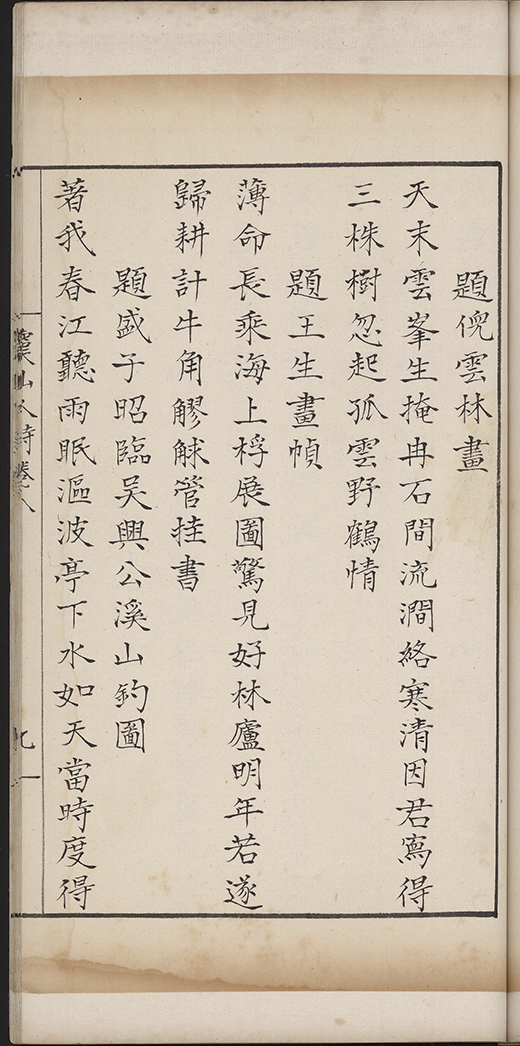 題倪雲林畫
天末雲峯生掩冉石間流澗絡寒清因君寫得
三株樹忽起孤雲野鶴情
題王生畫幀
薄命長乘海上桴展圖驚見好林廬明年若遂
歸耕計牛角觺觩管挂書
題盛子昭臨吳興公溪山釣圖
著我春江聽雨眠漚波亭下水如天當時度得
人詩卷八
九